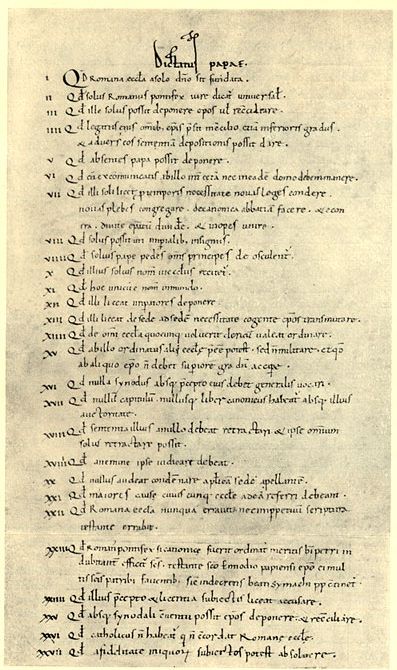 Dictatus papae.
I Qd Romana eccla a solo dno sit fundata.
II Qd solus Romanus pontifex iure dicat universal.
III Qd ille solus possit deponere epos ul reciliare.
IIII Qd legatus eius omib epis psit in cilio etia inferioris gradus.
& adversus eos sententiā depositionis possit dare.
V Qd absentes papa possit deponere.
VI Qd cū excomunicatis ab illo int cetera nec in eadē domo debem manere.
VII Qd illi soli licet p temporis necessitate novas leges condere.
novas plebes congregare. de canonica abbatiam facere. & econ
tra. divite epatū divid. & inopes unire.
VIII Qd solus possit uti impialib insigniis.
VIIII Qd solius pape pedes oms principes deosculent.
X Qd illius solius nom in ecclis recitet.
XI Qd hoc unicū e nom in mundo.
XII Qd illi liceat impatores deponere.
XIII Qd illi liceat de sede ad sedem necessitate cogente epos transmutare.
XIIII Qd de omi eccla quocunq voluerit clericū valeat ordinare.
XV Qd ab illo ordinatus alii eccle pee potest. sed n militare. et qd
ab aliquo epo n debet superiorē gradū accipe.
XVI Qd nulla synodus absq pcepto eius debet generalis vocari.
XVII Qd nullū capitulū. nullusq liber canonicus habeat absq illius
auctoritate.
XVIII Qd sententia illius a nullo debeat retractari & ipse omium
solus retractare possit.
XVIIII Qd a nemine ipse iudicari debeat.
XX Qd nullus audeat condēnare aplicā sedē apellante.
XXI Qd maiores cause cuiuscunq eccle ad eā referri debeant.
XXII Qd Romana eccla nunqua erravit nec imppetuū scriptura
testante errabit.
XXIII Qd Roman pontifex si canonice fuerit ordinat meritis b petri in
dubitant efficit scs. testante sco Ennodio papiensi epo ei mul
tis scis patribs faventib. sic in decretis beati symachi pp ctinet.
XXIIII Qd illius pcepto & licentia subiectis liceat accusare.
XXV Qd absq synodali cventu possit epos deponere & reciliare.
XXVI Qd catholicus n habeat q n ccordat Romane eccle.
XXVII Qd a fidelitate iniquor subiectos potest absolvere.